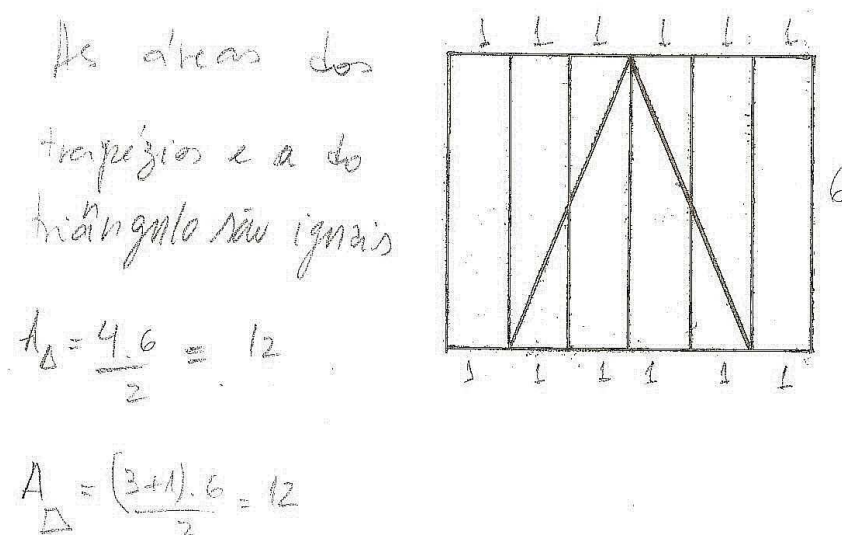 As áreas dos
trapézios e a do
triângulo são iguais
A△ = 4.6/2 = 12
A⏢ = (3+1).6/2 = 12
1 1 1 1 1 1
6
1 1 1 1 1 1